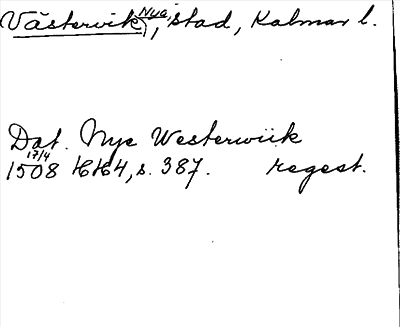 Västervik (Nya), stad, Kalmar l.
Dat. Nye Westerwiik
17/4
1508 HH4, s. 387. regest.